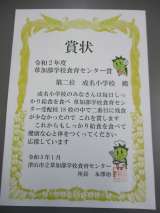 賞状
令和2年度
草加部学校食育センター賞
第二位 成名小学校 殿
成名小学校のみなさんは毎日しっ
かり給食を食べ 草加部学校食育セン
ター受配校18校の中で二番目に残食
が少なかったので これを賞します
これからもしっかり給食を食べて
健康な心と体をつくってください
応援しています
令和3年1月
津山市立草加部学校食育センター
所長